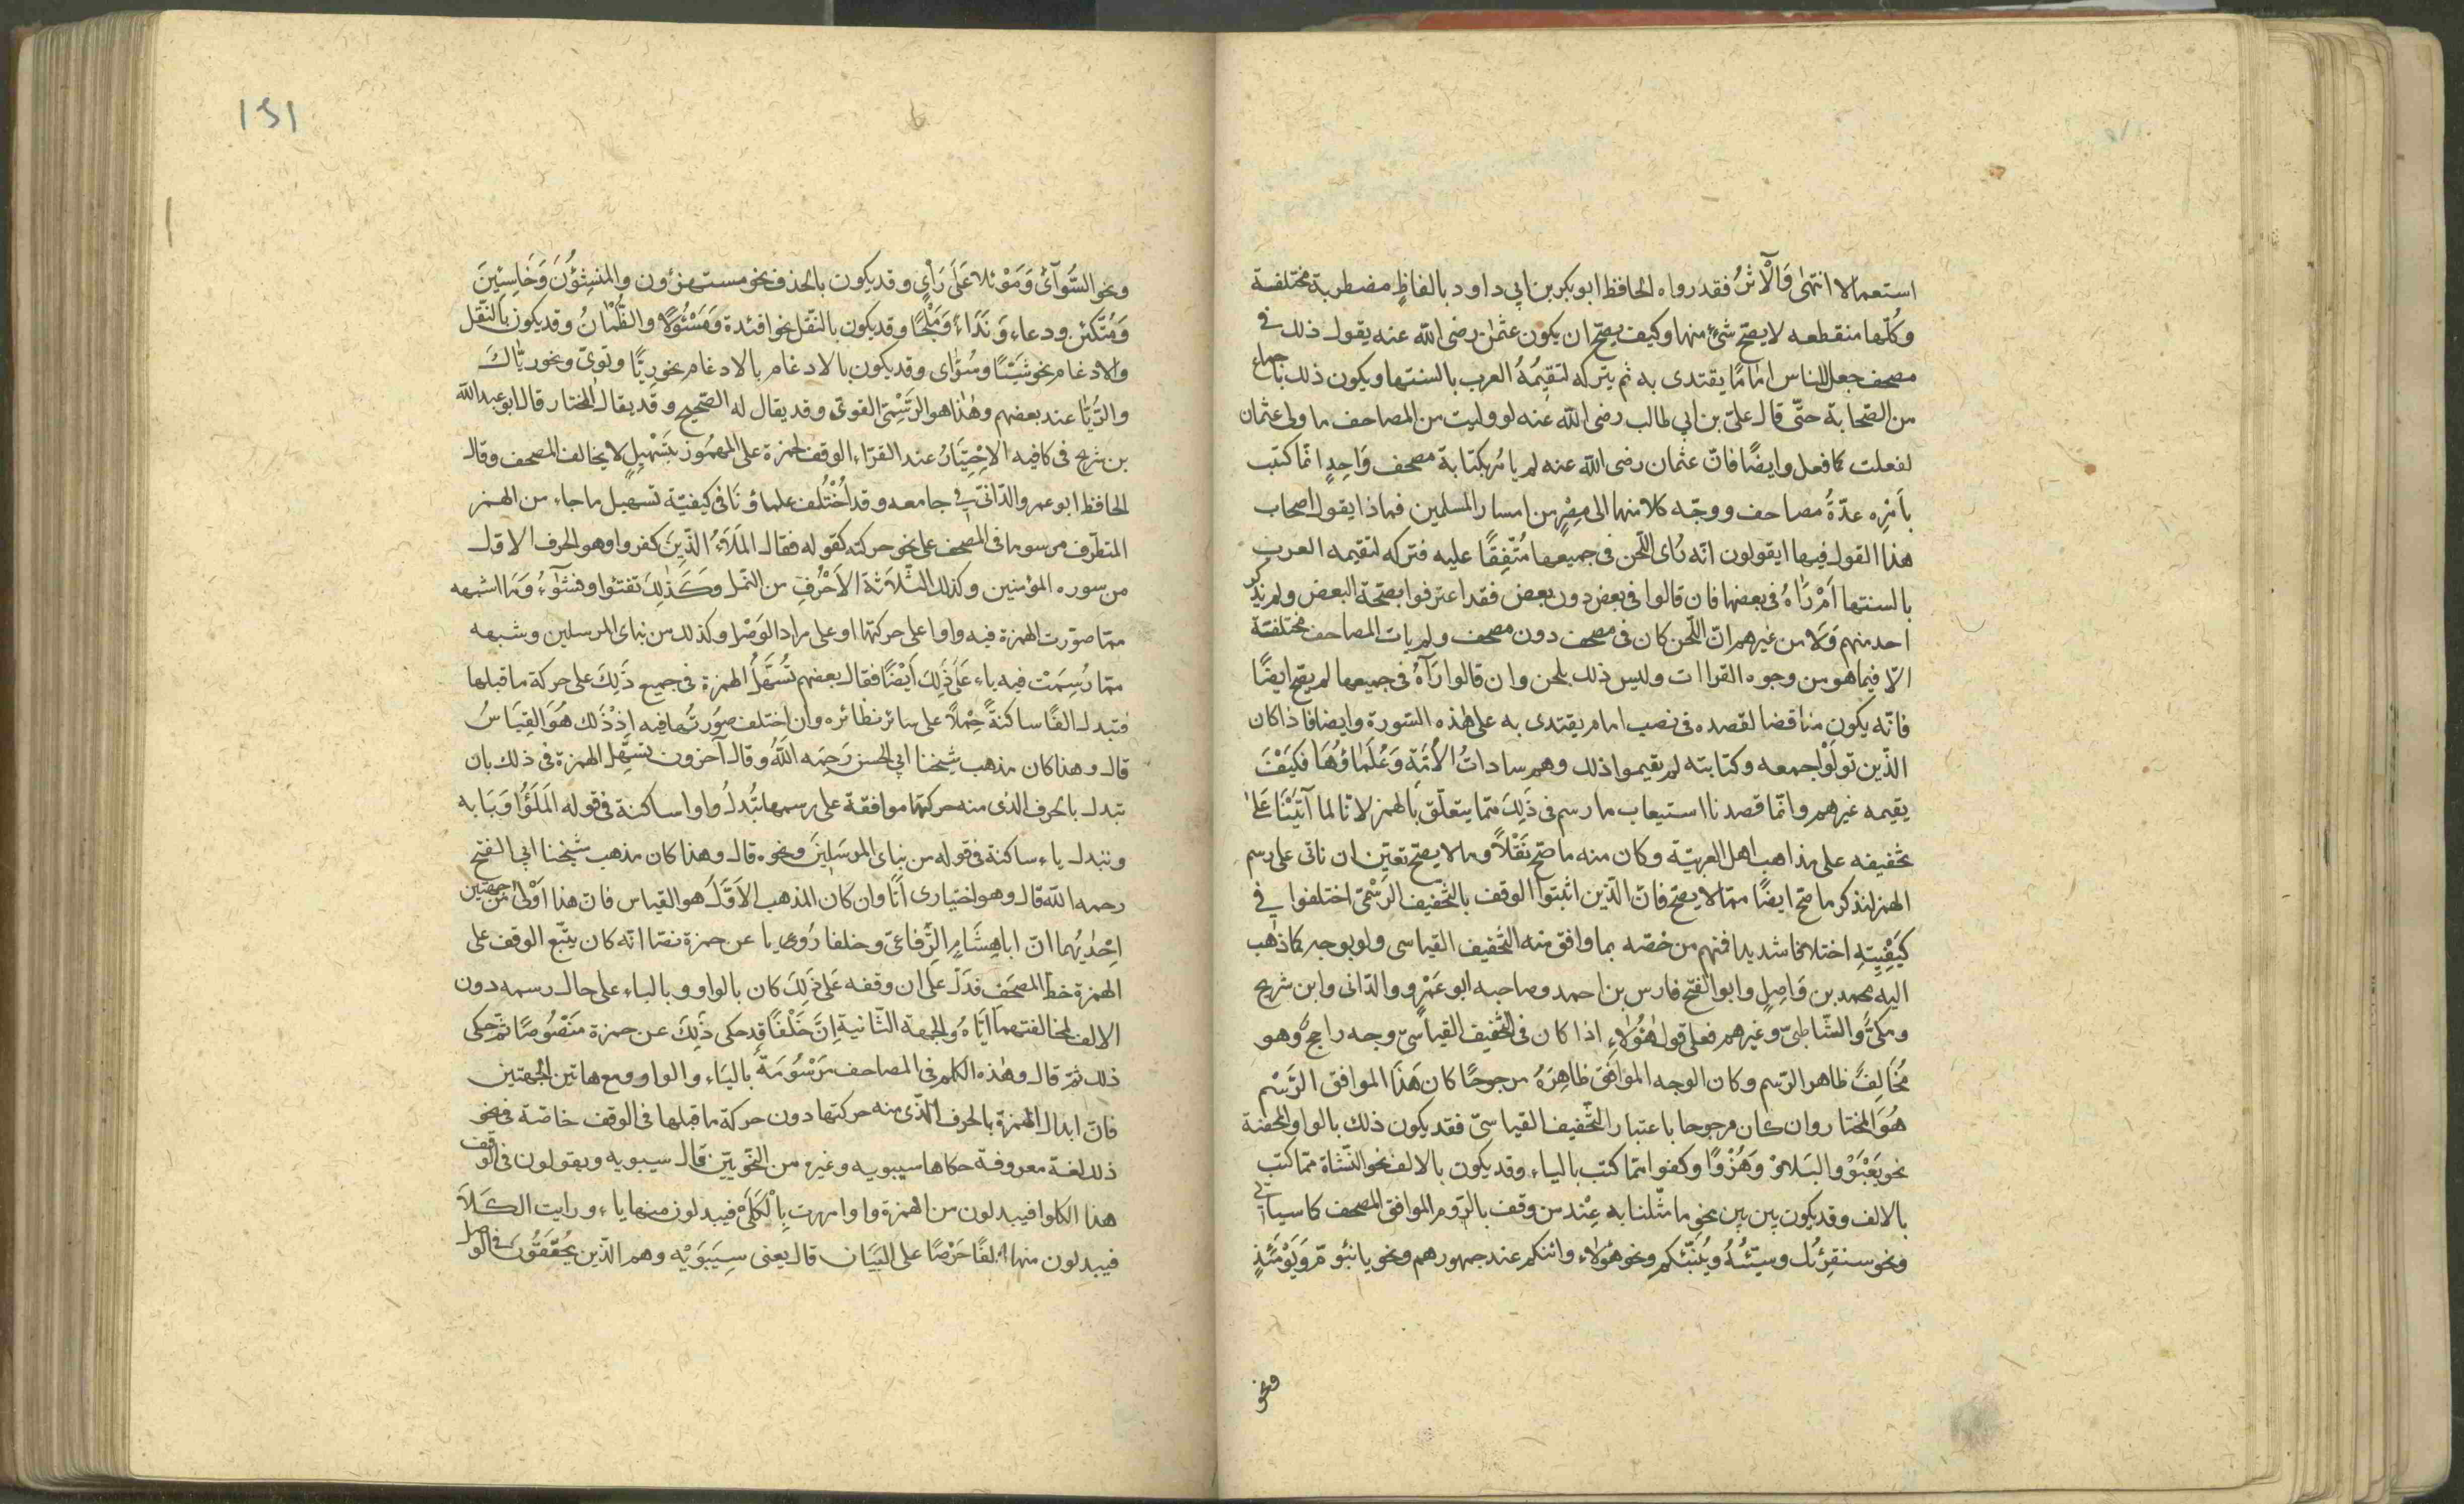 استعمالا انتهى وَالْآثَرُ فقد رواه الحافظ ابو بكر بن ابي داود بالفاظٍ مضطربة مختلفة
وكُلّها منقطعه لا يصحّ شئٌ منها وكيف يصحّ ان يكون عثمٰن رضى الله عنه يقول ذلك في
مصحف جعل للناس امامًا يقتدى به ثم يتركه لتقِيمُهُ العرب بالسنتها ويكون ذلك باجماع
من الصّحابة حتّى قال علىّ بن ابي طالب رضى الله عنه لو وليت من المصاحف ما ولى عثمان
لفعلت كما فعل وايضًا فانّ عثمان رضى الله عنه لم يامُر بكتابة مصحف وَاحِدٍ انّما كتب
بأمْرِه عدّةُ مصاحف ووجّه كلا منها الى مِصْرٍ من امسار المسلمين فماذا يقول اصحاب
هذا القول فيها ايقولون انّه رُاى اللّحن فى جميعها مُتّفِقًا عليه فتركه لتقيمه العرب
بالسنتها اَمْ رَاهُ فى بعضها فان قالوا فى بعض دون بعض فقد اعترفوا بصّحة البعض ولم يذكر
احد منهم وَلَا من غيرهم انّ اللّحن كان فى مصحف دون مصحف ولم يات المصاحف مختلفة
الّا فيما هو من وجوه القراات وليس ذلك بلحن وان قالوا رَآهُ فى جميعها لم يصحّ ايضًا
فانّه يكون مناقضا لقصده فى نصب امام يقتدى به على هٰذه السّورة وايضا فاذا كان
الّذين تولَوْا جمعه وكتابته لم يقيموا ذلك وهم سادات الأُمَّة وَعُلَمَاؤُهَا فكَيَفْ
يقيمه غيرهم وانّما قصدنا استيعاب ما رسم فى ذَلِكَ ممّا يتعلّق بالهمز لانّا لما آتَيْنَا عَلىٰ
تخفيفه على مذاهب اهل العربيّة وكان منه ما صَحّ نَقْلاً وما لا يصحّ تعيّن ان ناتى على رسم
الهمز لنذكر ما صَحّ ايضًا ممّا لا يصحّ فانّ الّذين اثبتوا الوقف بالتّخفيف الرَسْمىّ اختلفوا في
كَيفْيتِهِ اختلافا شديدا فمنهم من خصّه بما وافق منه التّخفيف القياسى ولو بوجه كما ذهب
اليه محمد بن وَاصِلٍ وابو الفتح فارس بن احمد وصاحبه ابو عَمْرٍو والدّانى وابن شريح
ومكىّ والشّاطبىّ وغيرهم فعلى قول هٰؤُلاءِ اذا كان فى التّخفيف القياسىّ وجه راجحٌ وهو
مُخَالِفٌ ظاهر الرّسم وكان الوجه الموَافق ظاهِرَهُ مرجوحًا كان هَذَا الموافق الرَّسْم
هُوَ المختار وان كان مرجوحا باعتبار التّخفيف القياسىّ فقد يكون ذلك بالواو المحضة
نحو يَعْبَوْ والبَلاوْ وَهُزْوًا وكفوا ممّا كتب بالياء وقد يكون بالالف نحو النّشاة ممّا كتب
بالالف وقد يكون بين بين نحو ما مثّلنا به عِنْد من وقف بالرّوم الموافق المصحف كما سياتى
ونحو سنقرِئُك وسيّئُهُ ويُنَبّئكم ونحو هٰؤلاء وائنكم عند جمهورهم ونحو يابنؤمّ وَيَوْمَئذٍ
ونحو
151
ونحو السُّوآئ وَمَوْئلا عَلَىَ رَأْيٍ وقد يكون بالحذف نحو مستهزؤن والمنشِئُونَ وَخَاسِئينَ
وَمُتَّكئن ودعاء وَنَدَاءً وَمَلْجًا وقد يكون بالنّقل نحو افئدة وَمَسْئُولًا والظّمْانُ وقد يكون بالنّقل
والادغام نحو شَيْئًا وسُوَاى وقد يكون بالادغام بالادغام نحو رِيًّا وتوىّ ونحو ريّاك
والرُّيَّا عند بعضهم وهٰذا هو الرَسْمِىّ القوىّ وقد يقال له الصّحيح وقد يقال المختار قال ابو عبد الله
بن شريح فى كافيه الاِحْتِيَارُ عند القرّاء الوقف لحمزة على المهمُوز بتَسْهِيلٍ لا يخالف المصحف وقال
الحافظ ابو عمرو والدّانىّ فى جامعه وقد اُخْتُلف علماؤنَا فى كيفيّة تسهيل ما جاء من الهمز
المتطرّف مرسوما فى المصحف على نحو حركته كقوله فقال المَلَاءُ الّذِينَ كفروا وهو الحرف الاوّل
من سوره المؤمنين وكذلك الثَّلاثَة الأَحْرُفِ من النّمل وَكَذٰلِكَ تفتئوا ونشٰوءُ وَمَا اشبهه
ممّا صوّرت الهمزة فيه واوا على حركتها او على مراد الوَصْل وكذلك من نباى المرسلين وشبهه
ممّا رُسِمَتْ فيه ياء عَلَى ذَلِكَ أَيْضًا فقال بعضهم تُسَهَّلُ الهمزة فى جميع ذَلِكَ على حركة ما قبلها
فتبدل الفًا ساكنةً حِمْلاً على سائر نظائره وان اختلف صوَرتُها فيه اِذْ ذَلك هُوَ القِيَاسُ
قال وهذا كان مذهب شيخنا ابي الحسن رَحِمَه اللّهُ وقال آخرون تسهّل الهمزة فى ذلك بان
تبدل بالحرف الذى منه حركتها موافقة على رسمها تُبْدلُ واوا ساكنة فى قوله المَلَؤُا وَبَابه
وتبدل ياء ساكنة فى قوله من نباى المرسَلِينَ ونحوه قال وهذا كان مذهب شيخنا ابي الفتح
رحمه اللّه قال وهو اختيارى أنَا وان كان المذهب الأوَّلَ هو القياس فانّ هذا اَوْلى من جهتين
اِحْدٰيهُما انّ اباهِشَامٍ الرِّفاعىّ وخلفا رُوىٰ يا عن حمزة نصّا انّه كان يتّبع الوقف على
الهمزة خط المصحَف فدَلّ عَلَى ان وقفه عَلَى ذَلِكَ كان بالواو وبالياء على حال رسمه دون
الالف لمخالفتهما ايَّاهُ والجهة الثّانية اِنَّ خَلْفًا قد حكى ذَلِكَ عن حمزة مَنْصُوصًا ثمّ حكى
ذلك ثمّ قال وهٰذه الكلم فى المصاحف مَرْسُومَةٌ باليَاء والواو ومع هاتين الجهتين
فانّ ابدال الهمزة بالحرف الّذى منه حركتها دون حركة ما قبلها فى الوقف خاصّة فى نحو
ذلك لغة معروفة حكاها سيبويه وغيره من النّحويّين قال سيبويه ويقولون فى الوقف
هذا الكلوا فيبدلون من الهمزة واوا مررت بِالْكَلَى فيبدلون منها ياء ورايت الكَلَا
فيبدلون منها الفًا حَرْصًا على البَيَان قال يعنى سِيَبَوَيْه وهم الّذين يُحَقّقُونَ فى الوصل